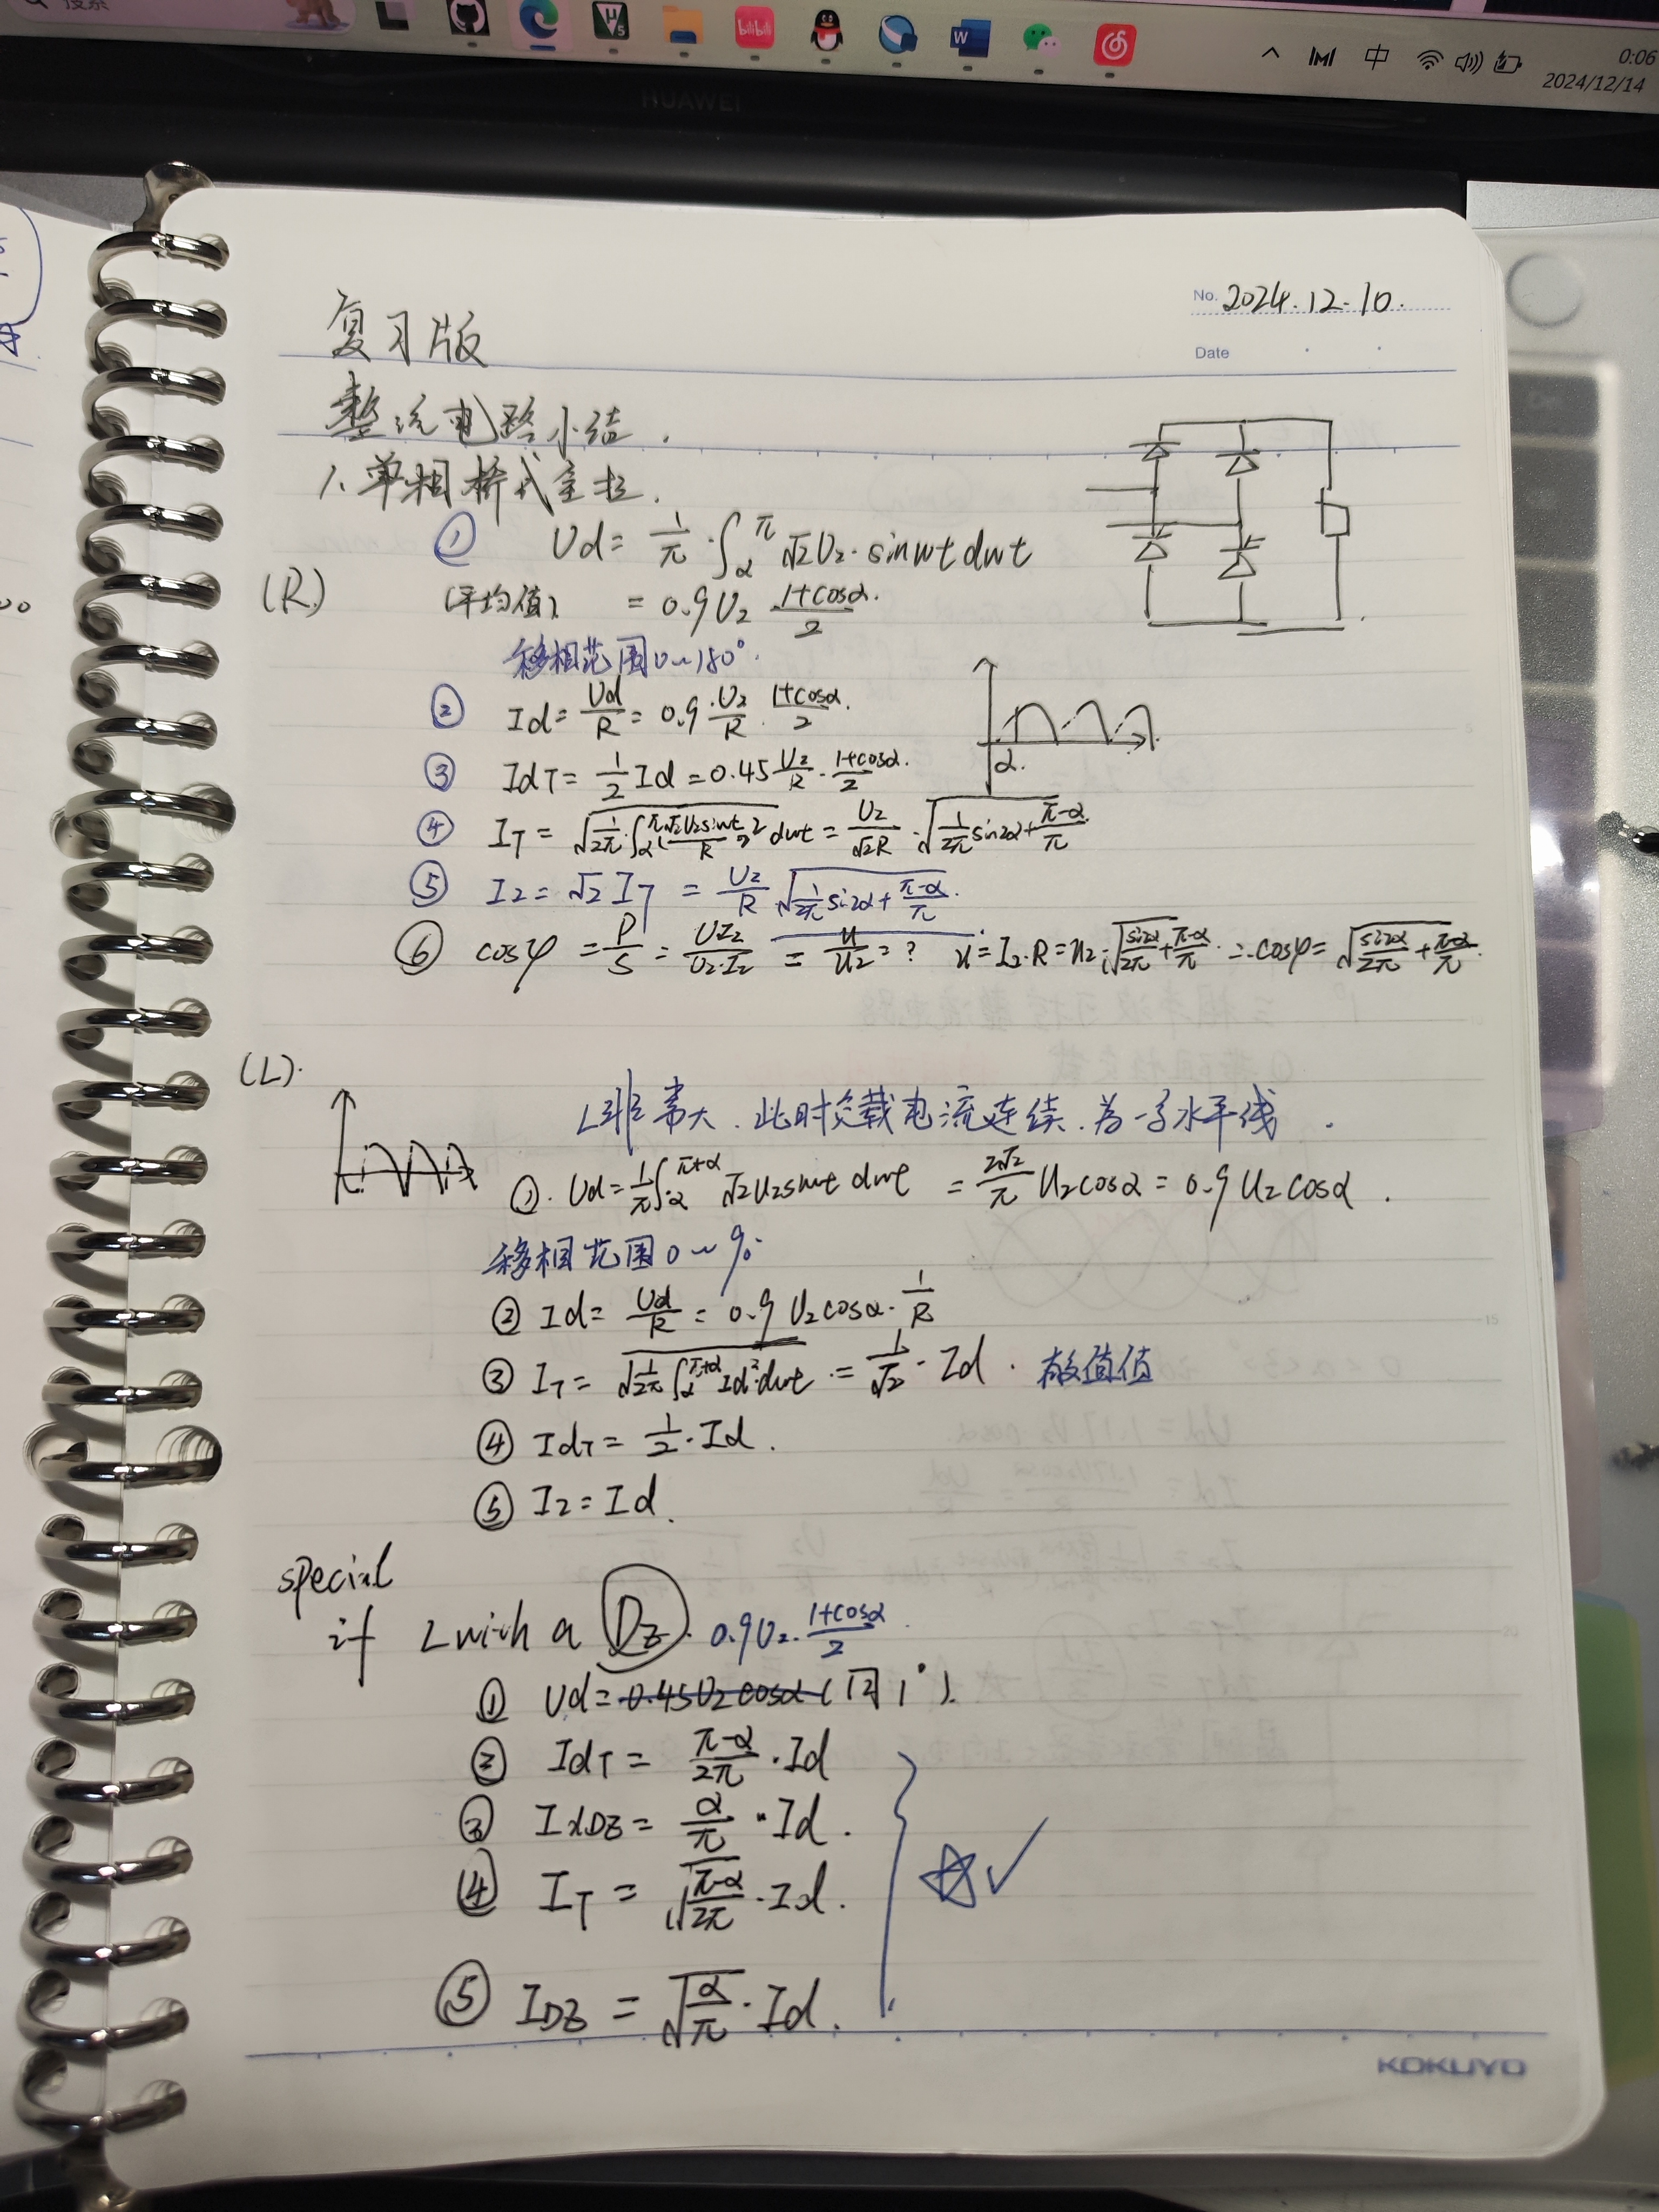 搜索
bilibili
W
中
0:06
2024/12/14
HUAWEI
No. 2024.12.10.
Date
复习版
整流电路小结.
1. 单相桥式全控.
① Ud = 1/π · ∫_α^π √2U₂·sinwt dwt
(R)
(平均值) = 0.9U₂ (1+cosα)/2
移相范围0~180°.
② Id = Ud/R = 0.9·U₂/R · (1+cosα)/2
③ IdT = 1/2 Id = 0.45 U₂/R · (1+cosα)/2
α.
④ I_T = √(1/2π · ∫_α^π (√2U₂sinwt/R)² dwt) = U₂/√2R · √(1/2π sin2α + (π-α)/π)
⑤ I₂ = √2 I_T = U₂/R √(1/2π sin2α + (π-α)/π)
⑥ cosφ = P/S = UI₂/U₂·I₂ = u/u₂ = ? u = I₂·R = u₂·√(sin2α/2π + (π-α)/π) ∴ cosφ = √(sin2α/2π + (π-α)/π)
(L).
L非常大. 此时负载电流连续. 为一条水平线.
①. Ud = 1/π ∫_α^(π+α) √2U₂sinwt dwt = 2√2/π U₂cosα = 0.9U₂cosα.
移相范围0~90°
② Id = Ud/R = 0.9U₂cosα · 1/R
③ I_T = √(1/2π ∫_α^(π+α) Id² dwt) = 1/√2 · Id. 有效值值
④ IdT = 1/2 · Id.
⑤ I₂ = Id.
special
if L with a Dz. 0.9U₂·(1+cosα)/2
① Ud = 0.45U₂cosα (同1°).
② IdT = (π-α)/2π · Id
③ IdDz = α/π · Id.
④ I_T = √((π-α)/2π) · Id.
⑤ I_Dz = √(α/π) · Id.
KOKUYO